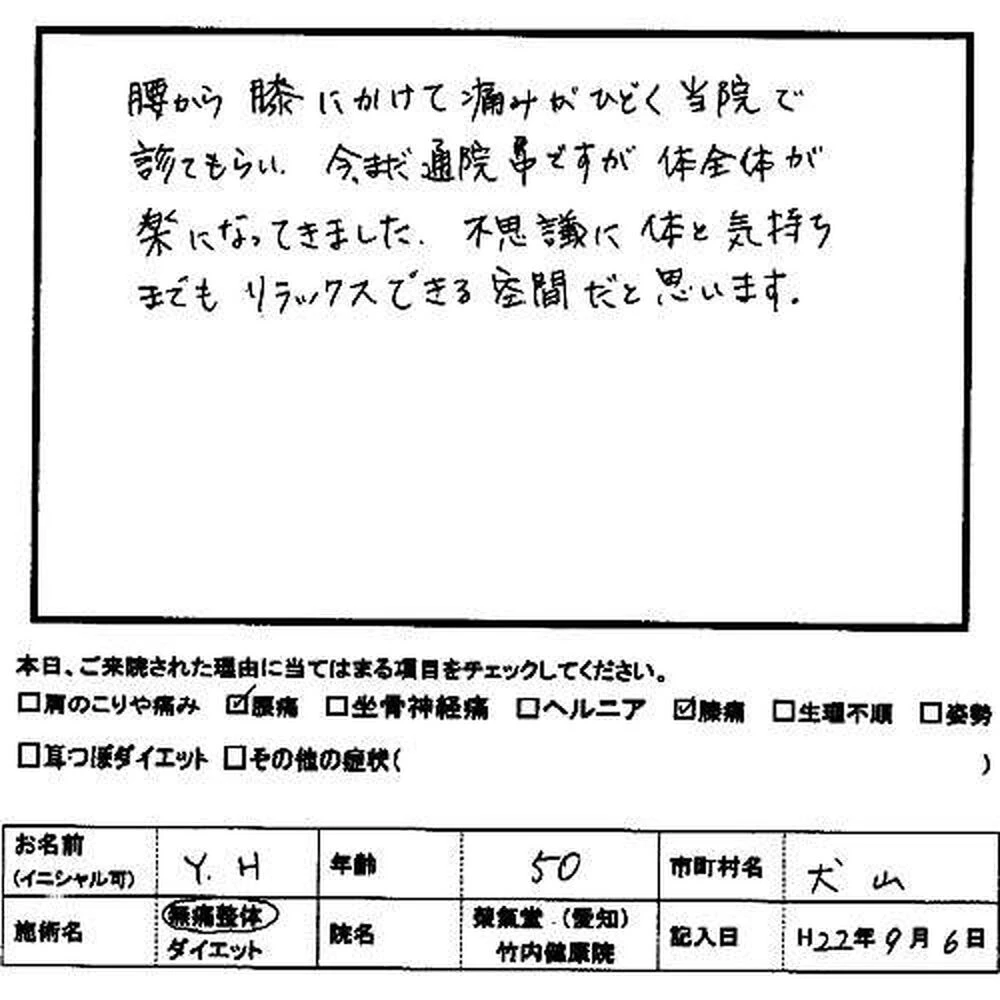 腰から膝にかけて痛みがひどく当院で
診てもらい、今、まだ通院中ですが体全体が
楽になってきました。不思議に体と気持ち
までもリラックスできる空間だと思います。
本日、ご来院された理由に当てはまる項目をチェックしてください。
□肩のこりや痛み ☑腰痛 □坐骨神経痛 □ヘルニア ☑膝痛 □生理不順 □姿勢
□耳つぼダイエット □その他の症状( )
お名前 (イニシャル可) Y.H 年齢 50 市町村名 犬山
施術名 無痛整体 ダイエット 院名 (愛知) 竹内健康院 記入日 H22年9月6日